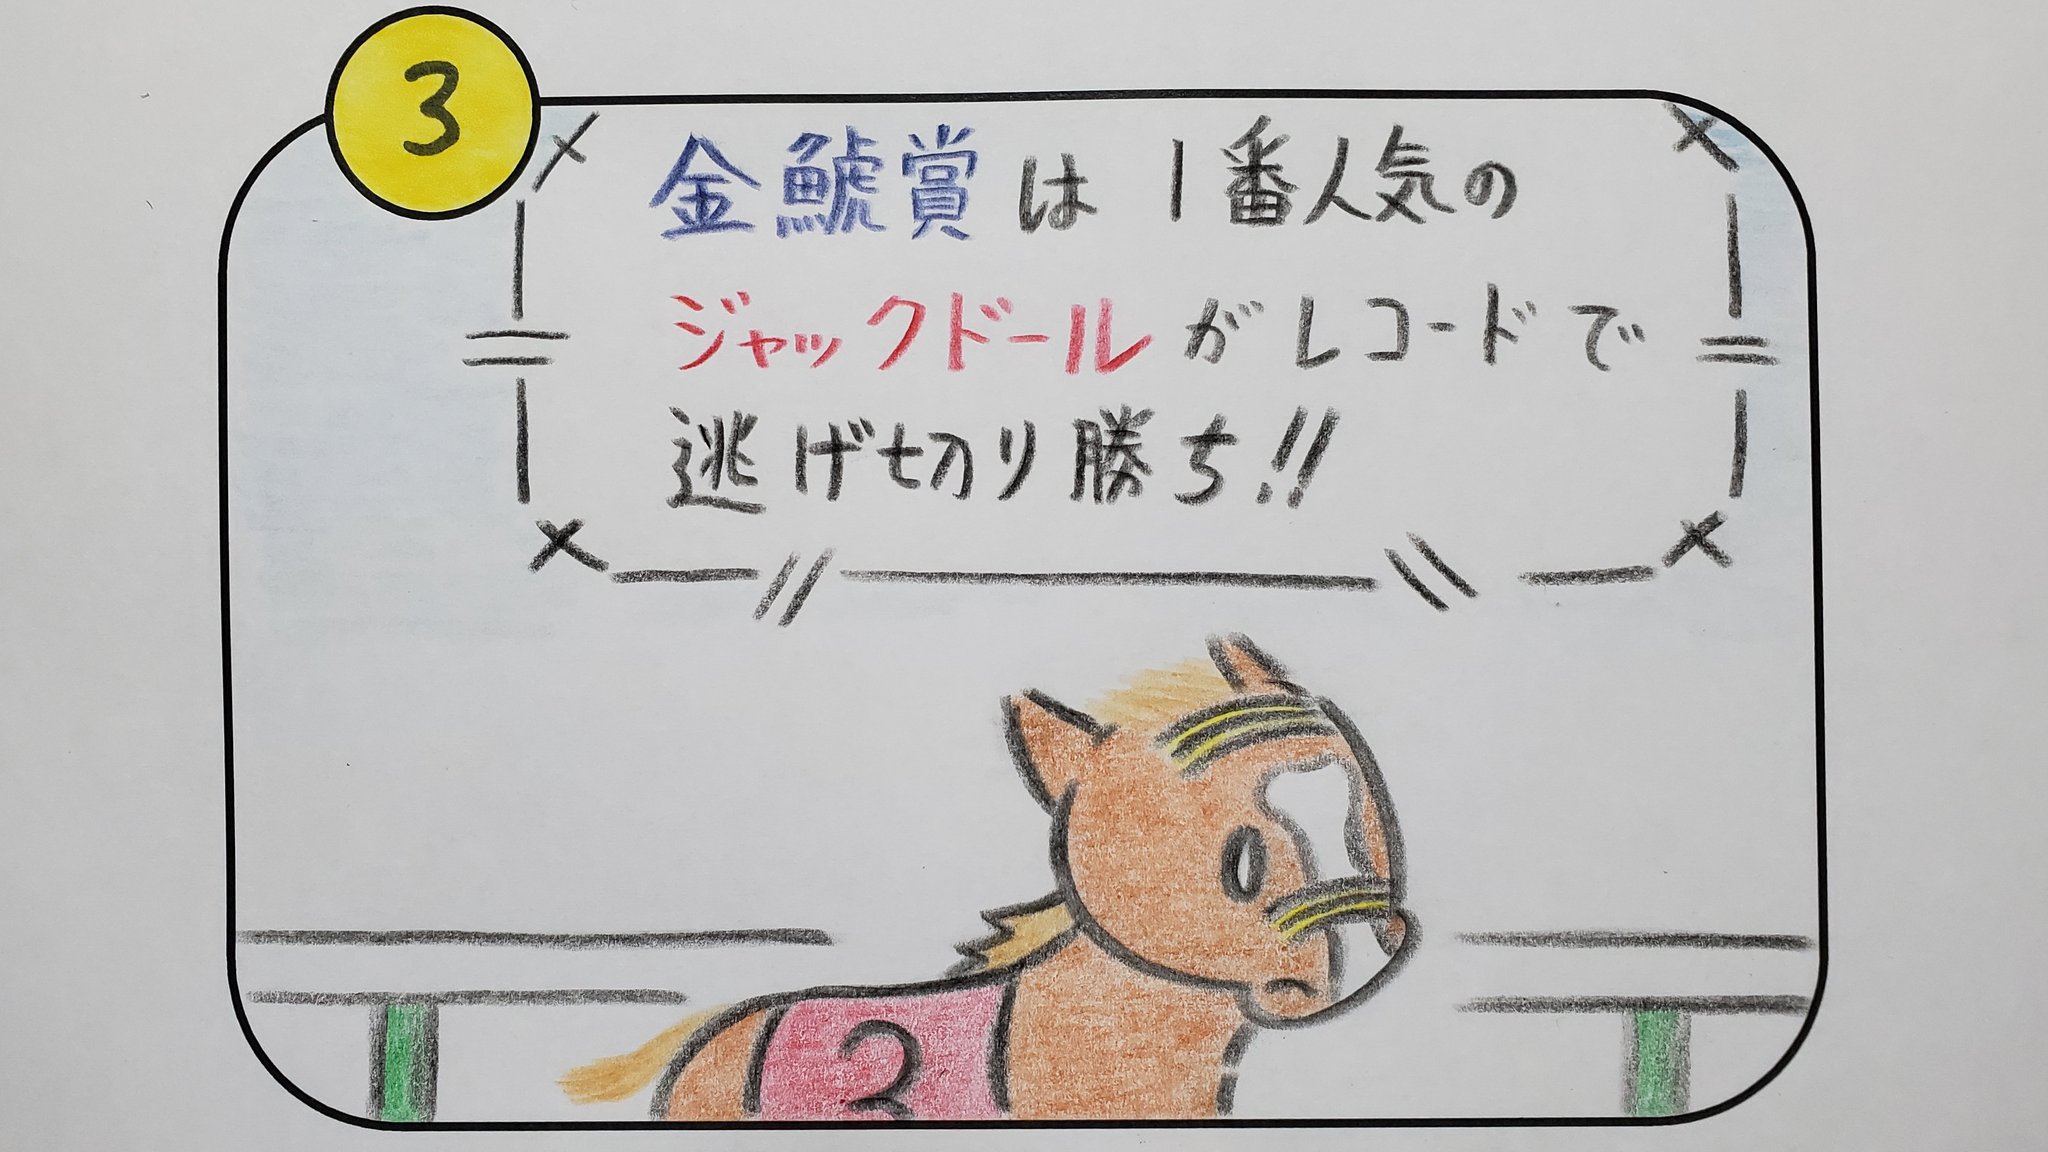 3
金鯱賞は1番人気の
ジャックドールがレコードで
逃げ切り勝ち!!
3